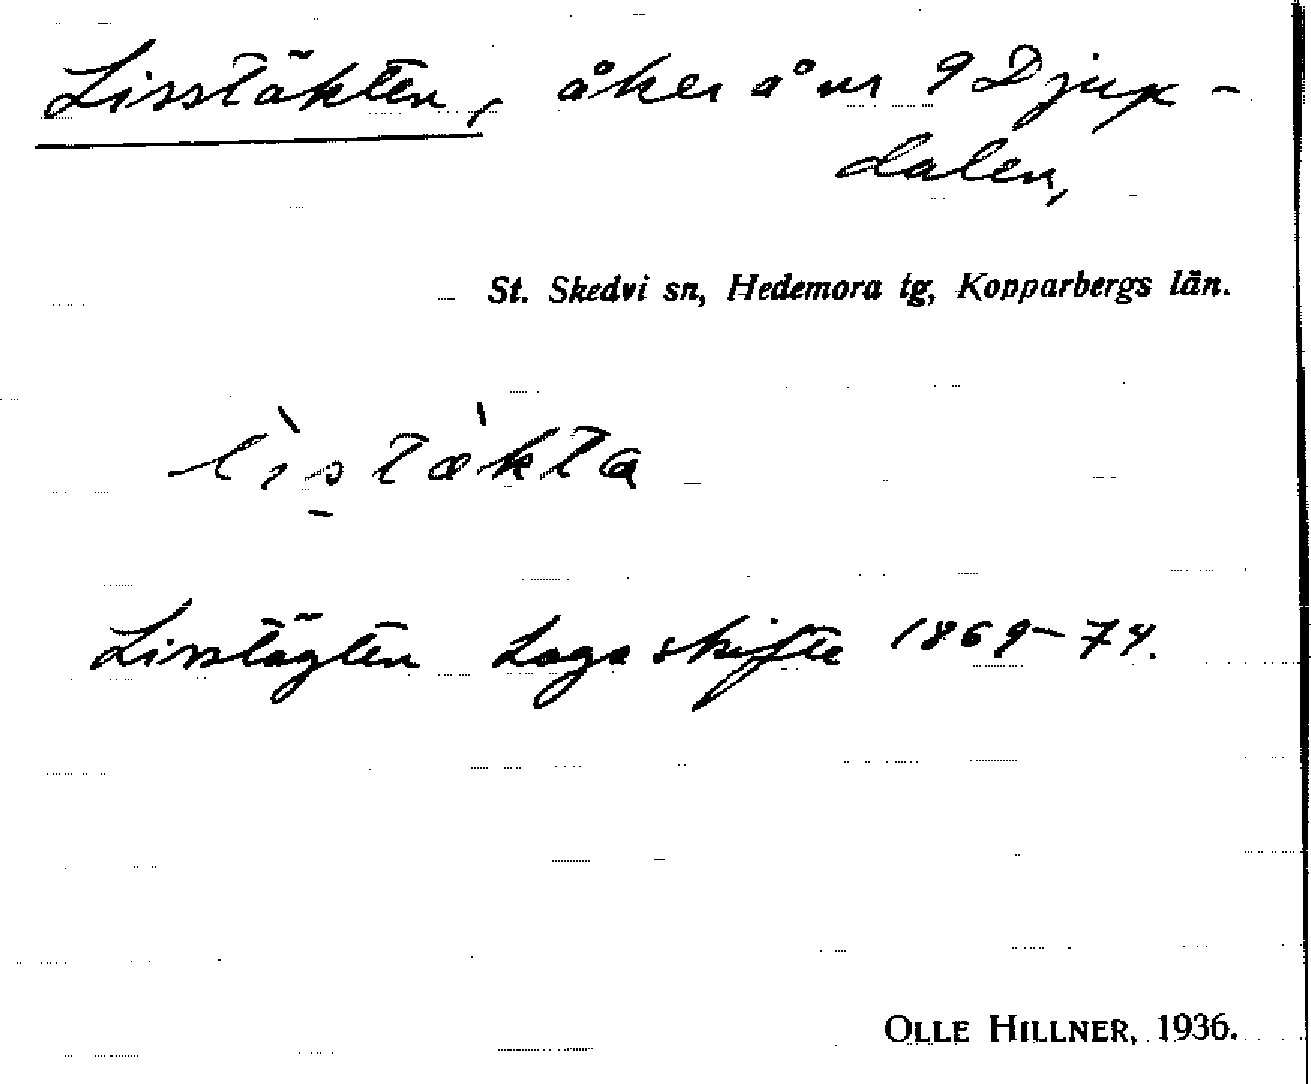 Lisstäkten, åker å nr 9 Djup-
dalen,
St. Skedvi sn, Hedemora tg, Kopparbergs län.
lìstæ̀kta
Lisstägten Laga skifte 1869-74.
OLLE HILLNER, 1936.